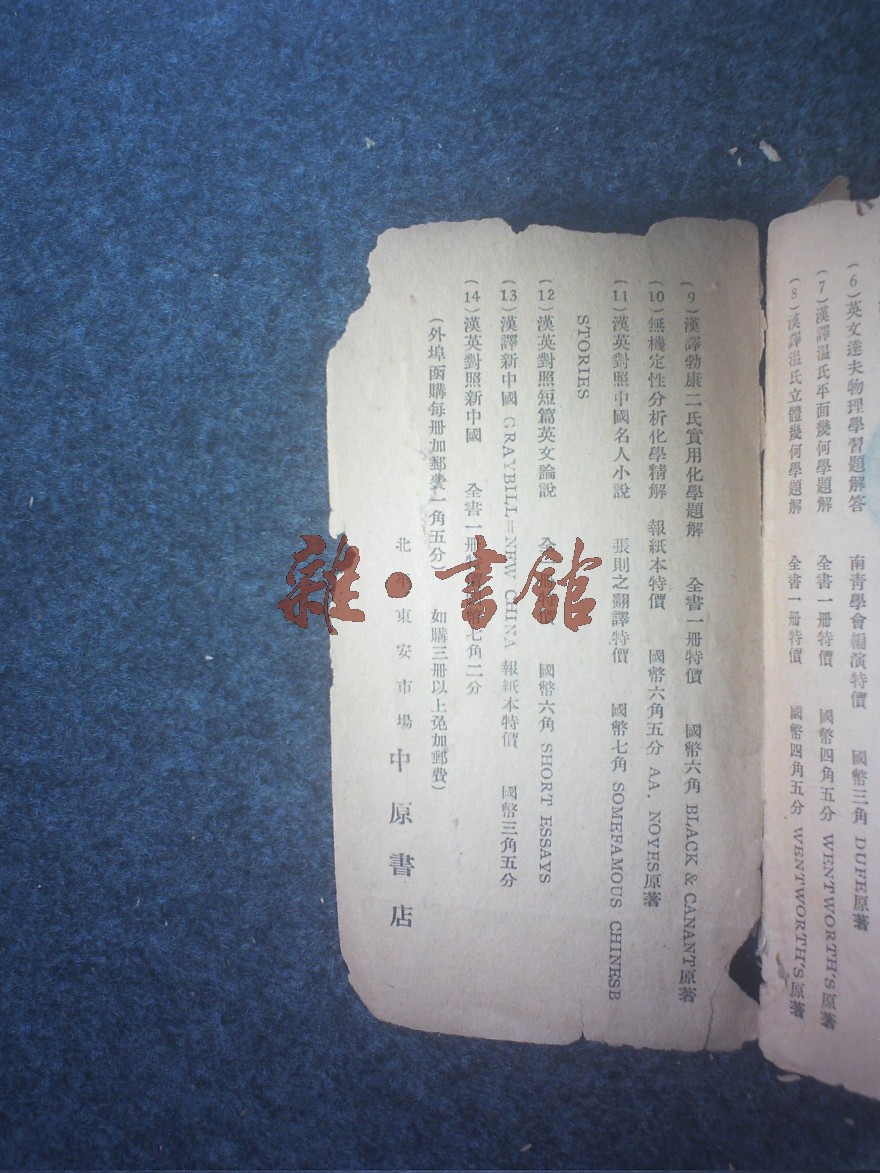 (6)英文達夫物理學習題解答 南青學會編演特價 國幣三角 DUFE原著
(7)漢譯温氏平面幾何學題解 全書一册特價 國幣四角五分 WENTWORTH'S原著
(8)漢譯温氏立體幾何學題解 全書一册特價 國幣四角五分 WENTWORTH'S原著
(9)漢譯勃康二氏實用化學題解 全書一册特價 國幣六角 BLACK & CANANT原著
(10)無機定性分析化學精解 報紙本特價 國幣六角五分 AA. NOYES原著
(11)漢英對照中國名人小說 張則之翻譯特價 國幣七角 SOMEFAMOUS CHINESB
STORIES
(12)漢英對照短篇英文論說 全 國幣六角 SHORT ESSAYS
(13)漢譯新中國 GRAYBILL=NEW CHINA 報紙本特價 國幣三角五分
(14)漢英對照新中國 全書一册 七角二分
(外埠函購每册加郵費一角五分) 如購三册以上免加郵費)
北 東安市場 中原書店
雜·書館